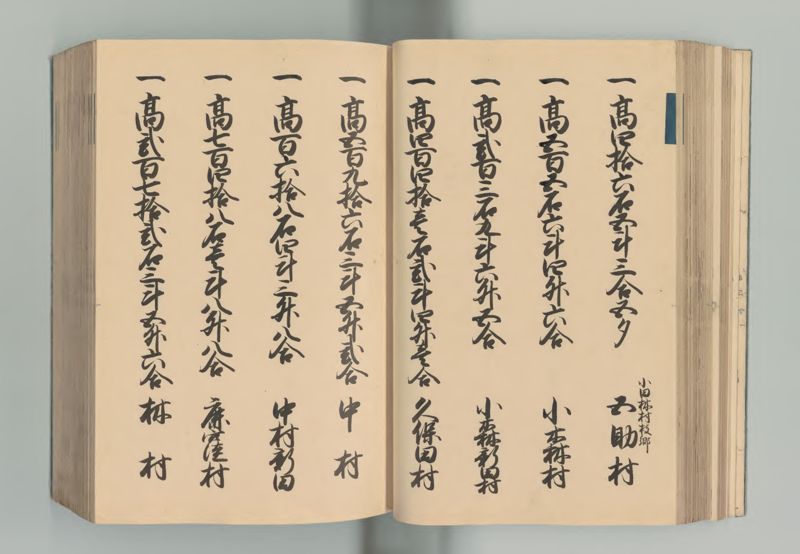 一高四拾六石五斗三合五夕
小田林村枝郷
五助村
一高五百五石六斗四升六合
小森村
一高弐百三石九斗六升五合
小森新田村
一高四百四拾壱石弐斗四升壱合
久保田村
一高五百九拾六石三斗五升弐合
中村
一高百六拾八石四斗二升八合
中村新田
一高七百四拾八石壱斗八升八合
村
一高弐百七拾弐石三斗五升六合
林村